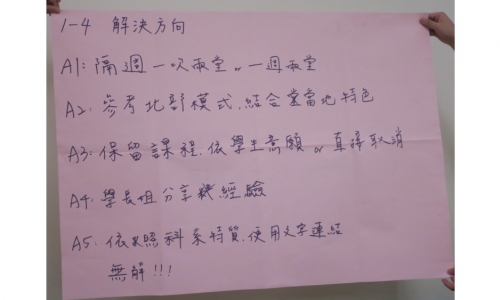 1-4 解決方向
A1: 隔週一次兩堂 or 一週兩堂
A2: 參考北部模式,結合當地特色
A3: 保留課程,依學生意願 or 直接取消
A4: 學長姐分享經驗
A5: 依照科系特質,使用文字連結
無解!!!